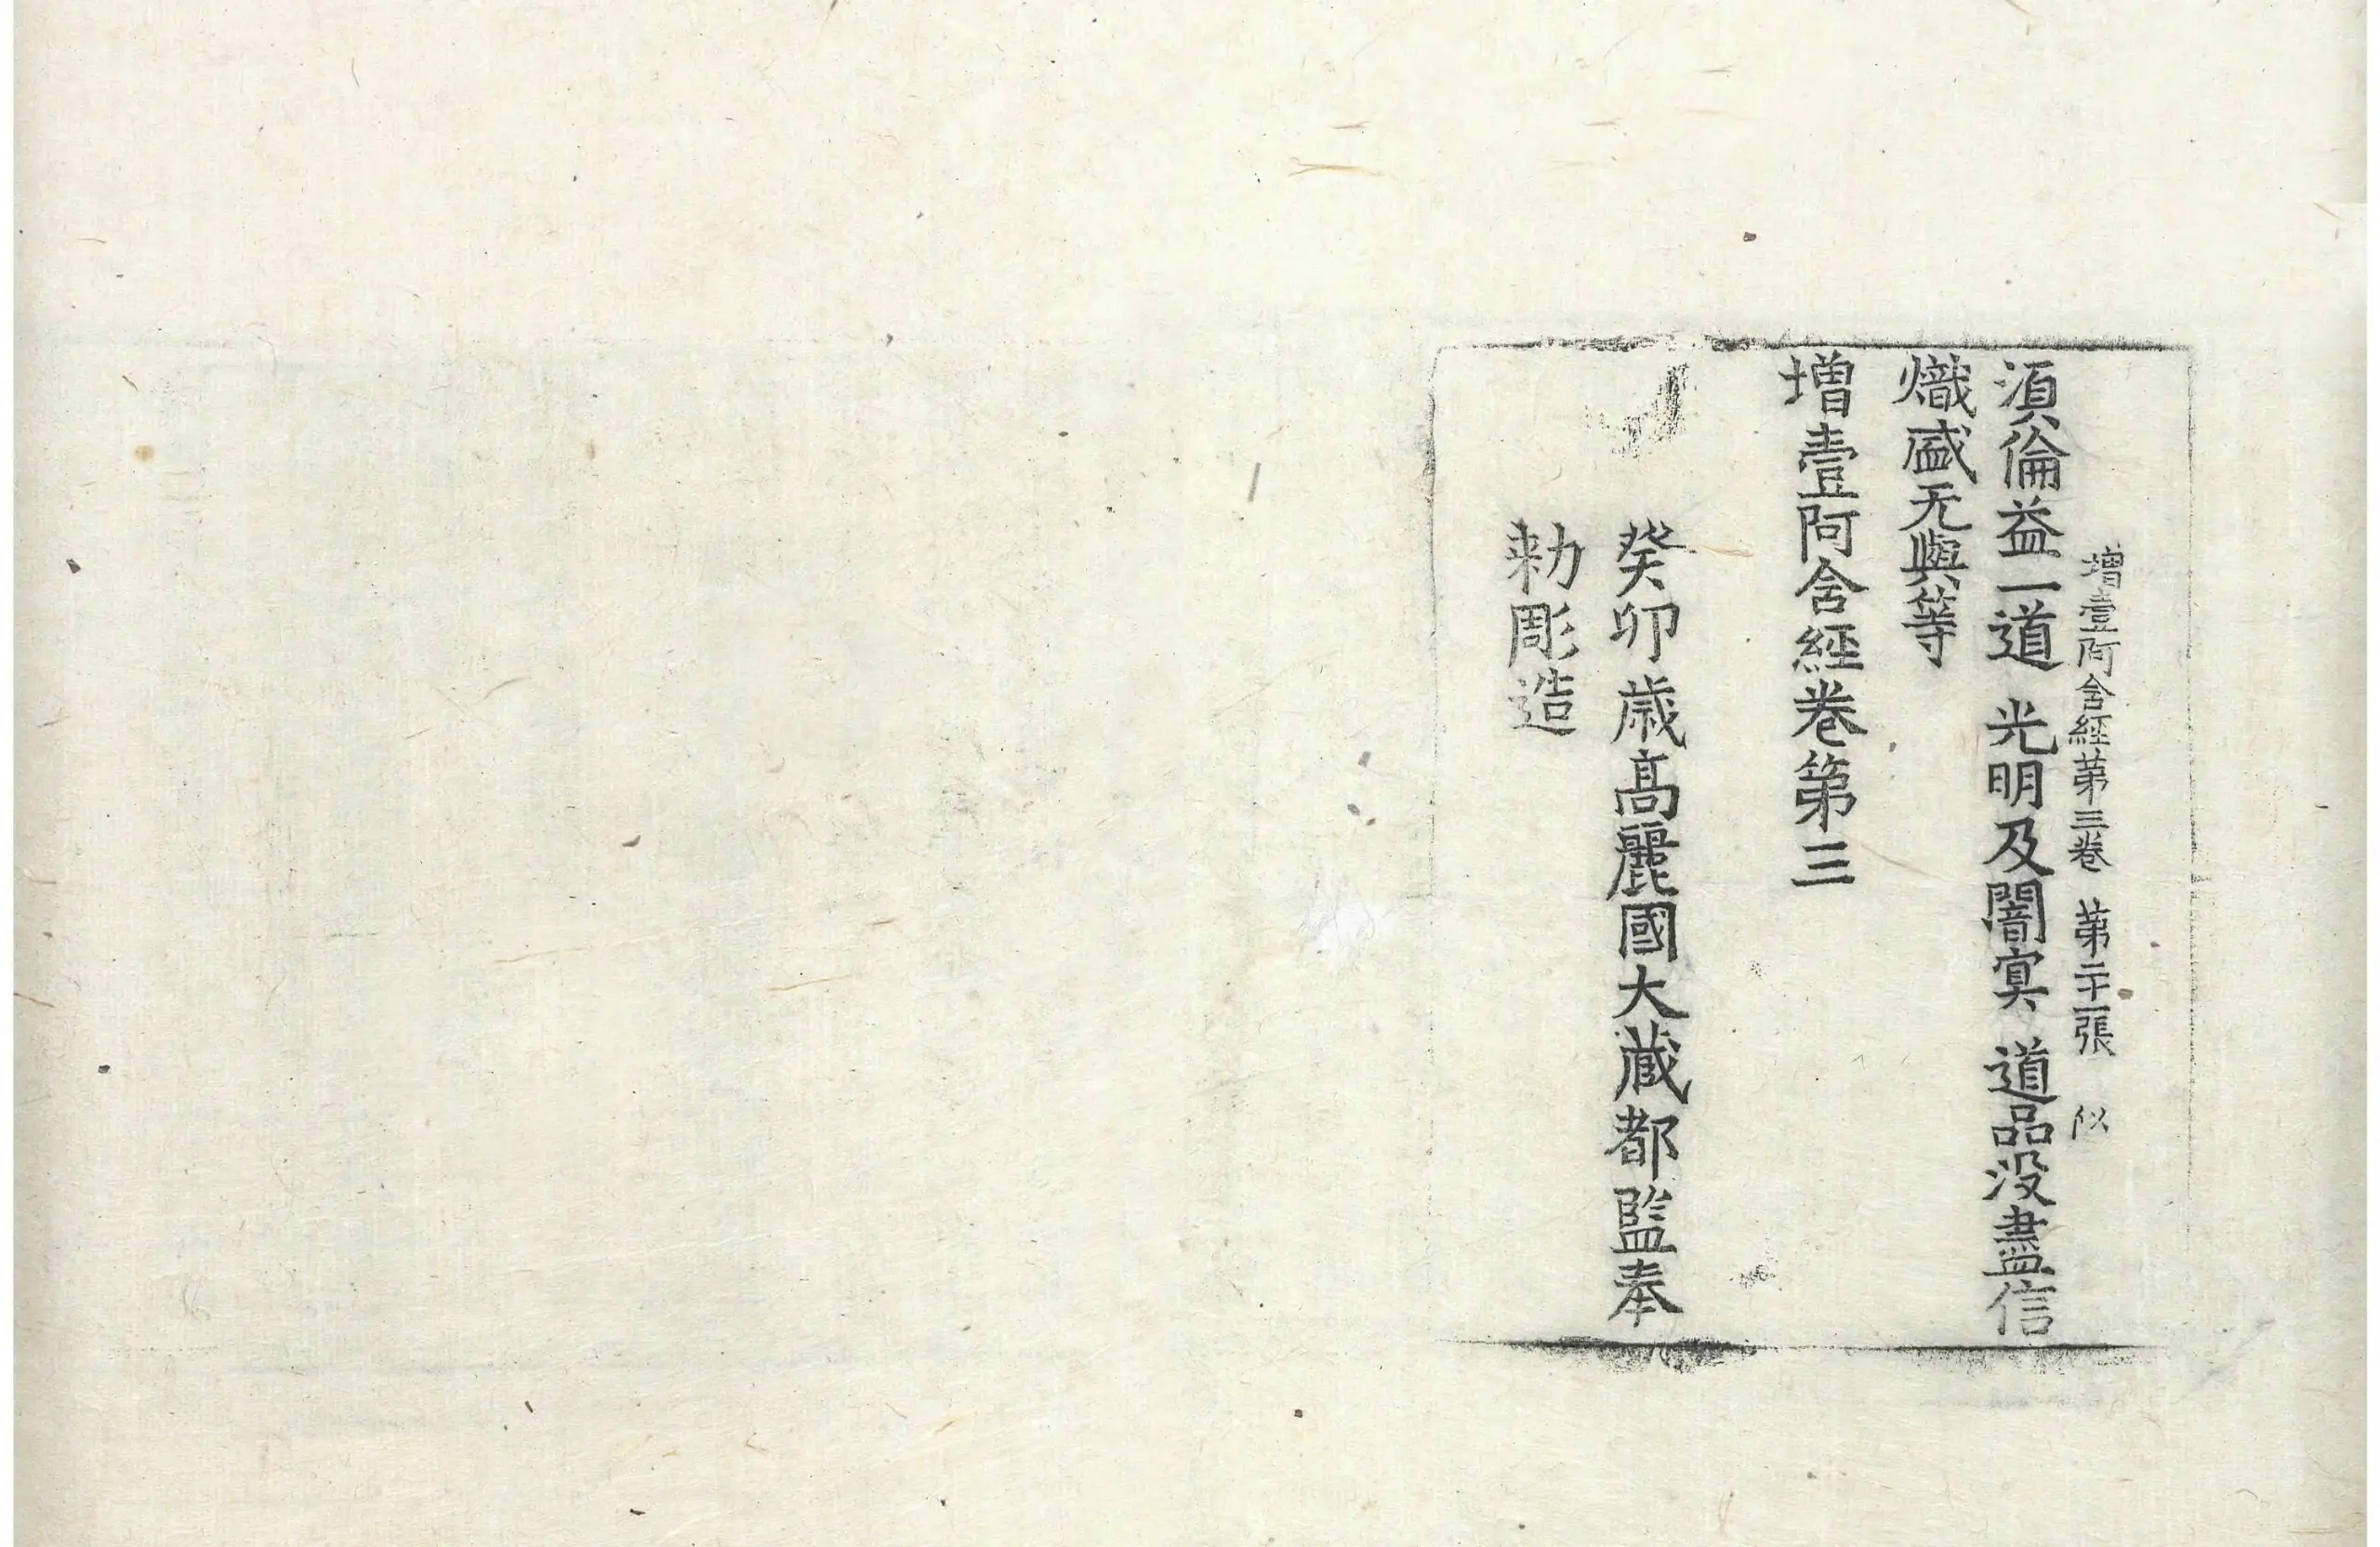 增壹阿含經第三卷 第二十一張 似
湏倫益一道 光明及闇冥 道品没盡信
熾盛无與等
增壹阿含經卷第三
癸卯歲高麗國大藏都監奉
勑彫造